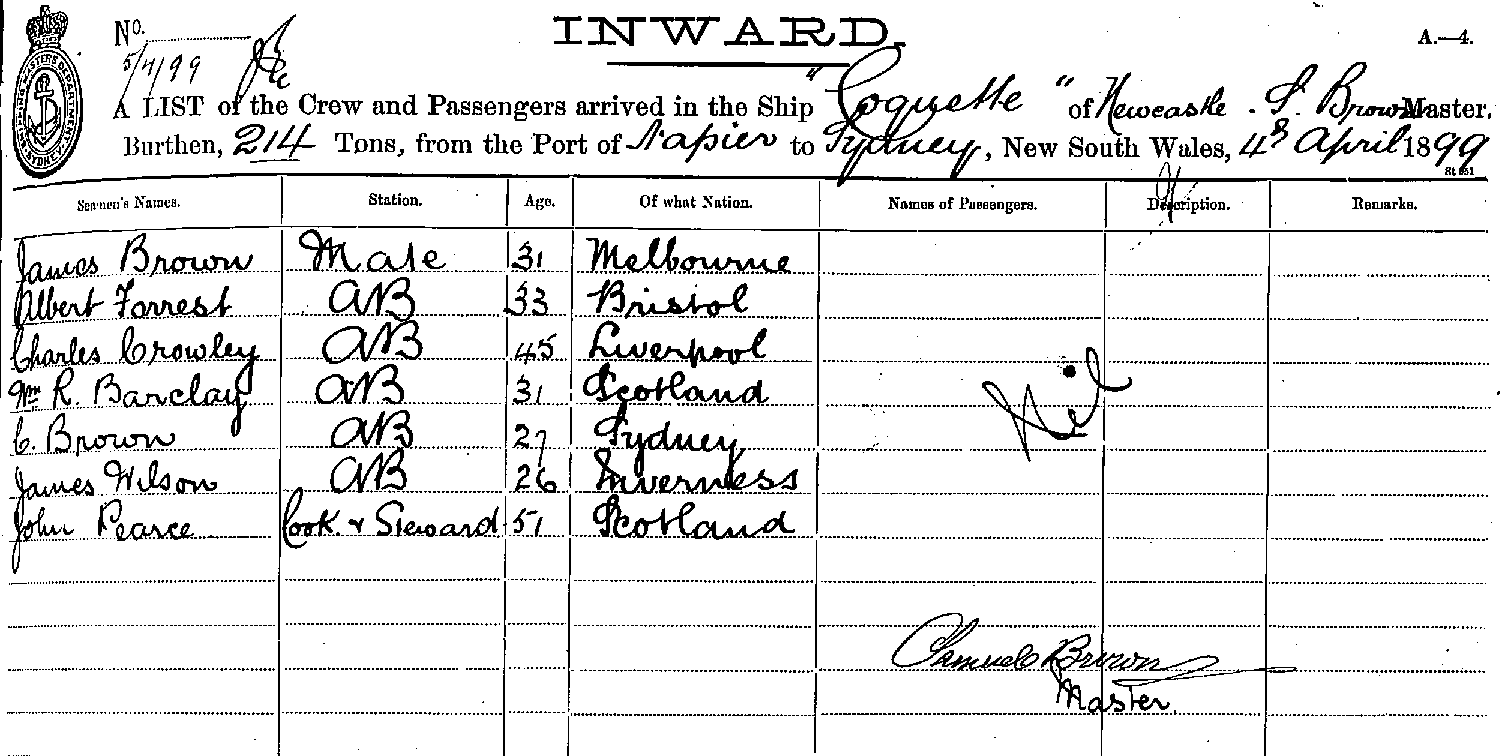 No.
INWARD.
A.—4.
5/4/99
A LIST of the Crew and Passengers arrived in the Ship "Coquette" of Newcastle. S. Brown Master,
Burthen, 214 Tons, from the Port of Napier to Sydney, New South Wales, 4th April 1899
Seamen's Names. Station. Age. Of what Nation. Names of Passengers. Description. Remarks.
James Brown Mate 31 Melbourne
Albert Forrest AB 33 Bristol
Charles Crowley AB 45 Liverpool
Wm R. Barclay AB 31 Scotland
C. Brown AB 27 Sydney
James Wilson AB 26 Inverness
John Pearce Cook & Steward 51 Scotland
Nil
Samuel Brown
Master.